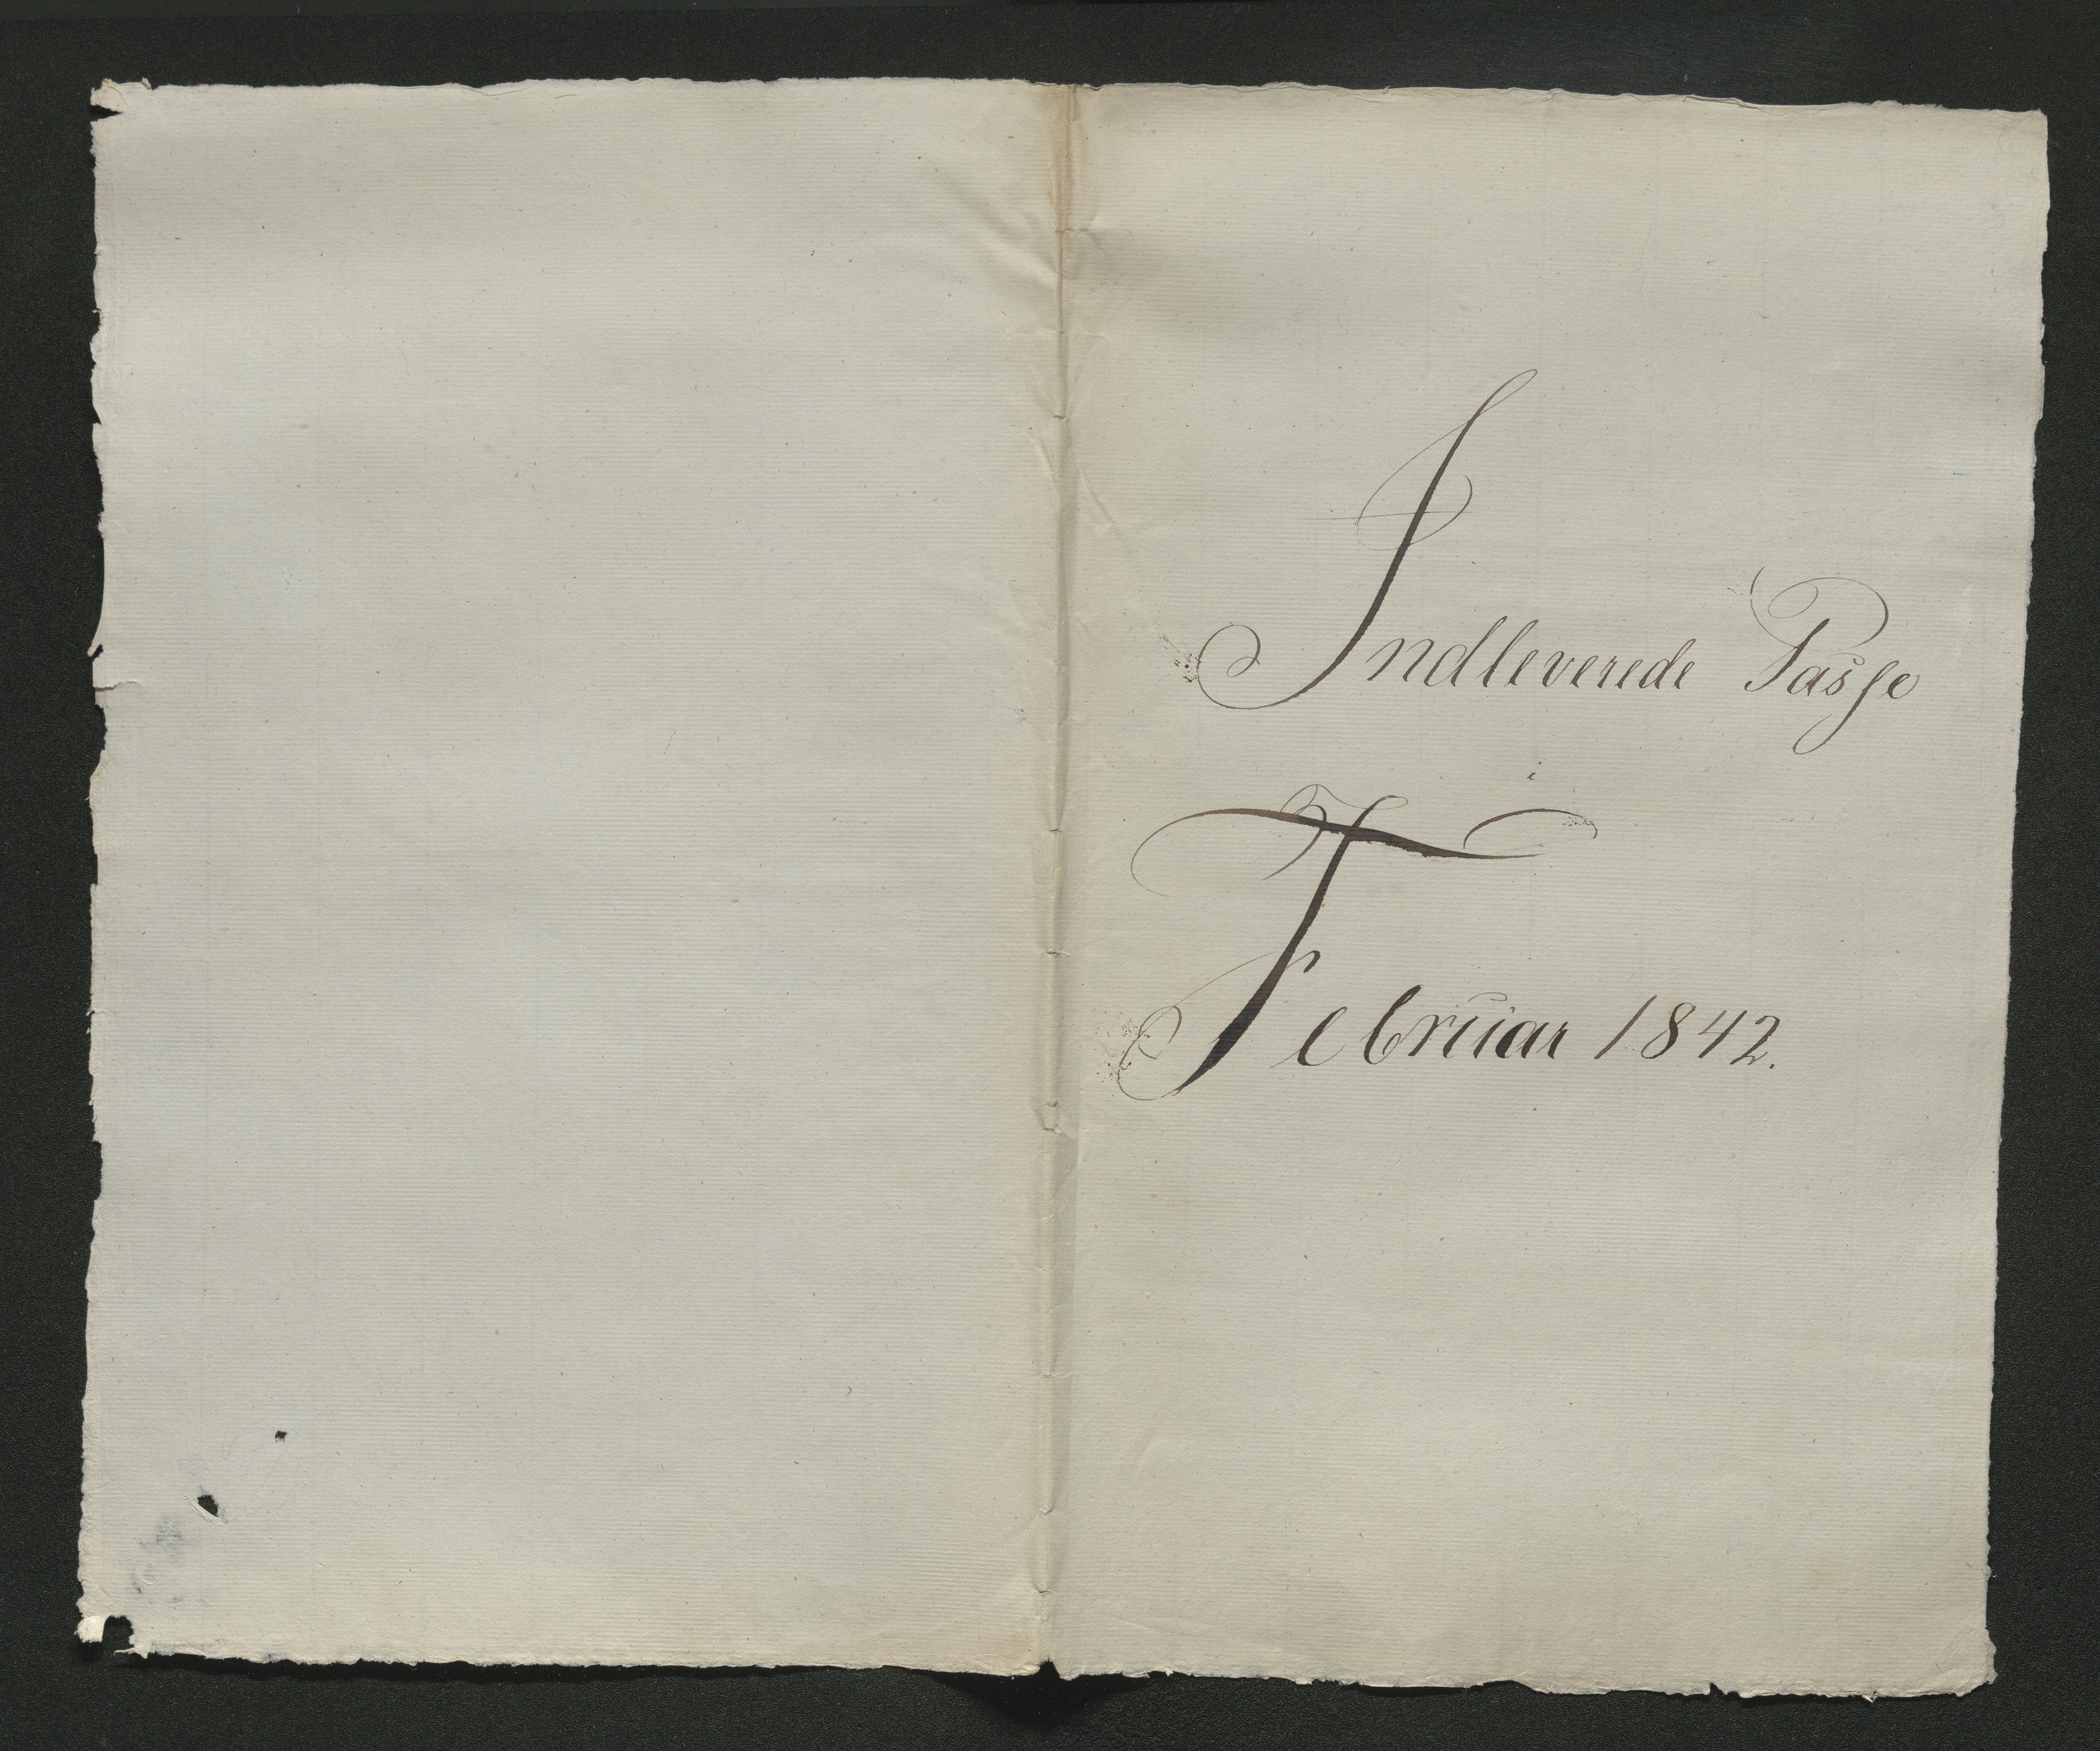 Indleverede Passe
i
Februar 1842.